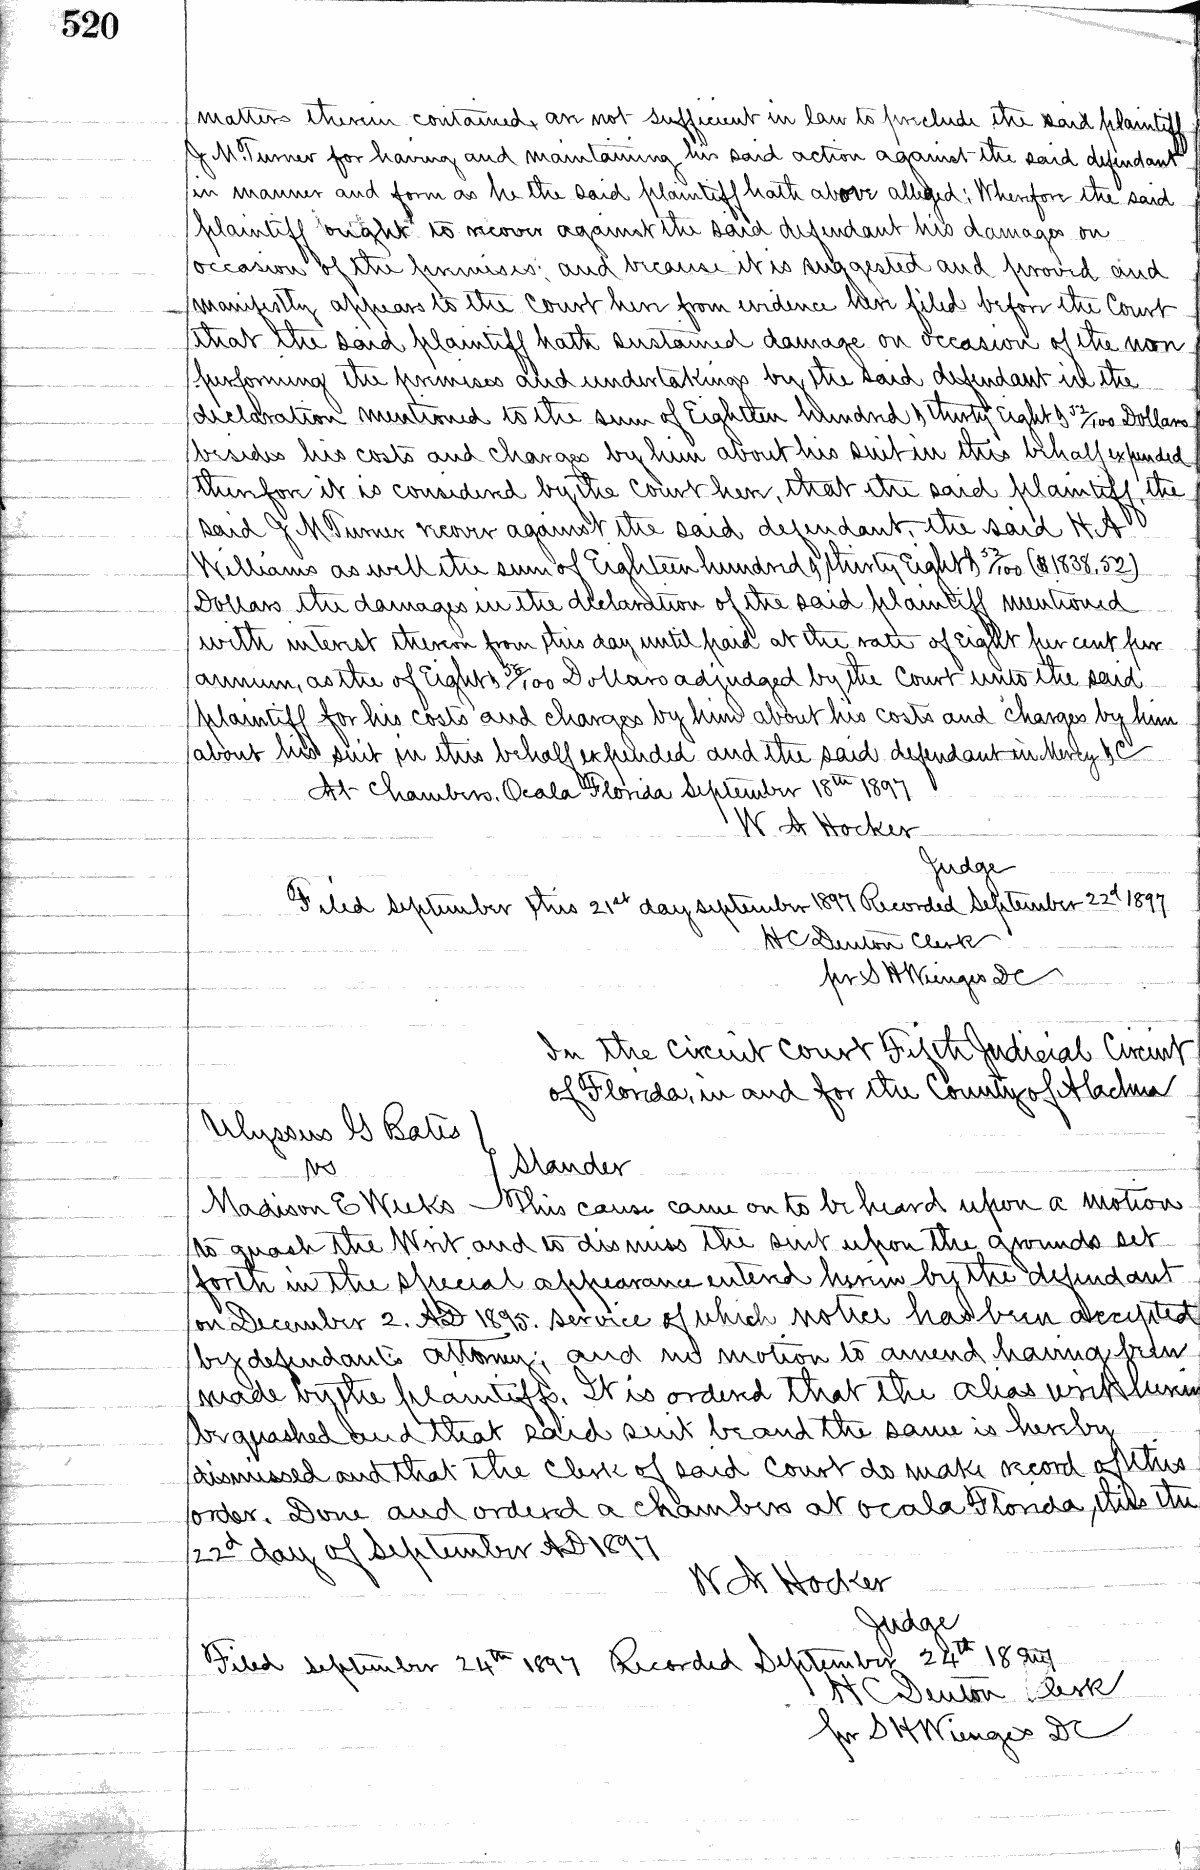 520
matters therein contained, are not sufficient in law to preclude the said plaintiff
J M. Turner for having and maintaining his said action against the said defendant
in manner and form as he the said plaintiff hath above alleged; Wherefore the said
plaintiff ought to recover against the said defendant his damages on
occasion of the premises; and because it is suggested and proved and
manifestly appears to the Court here from evidence here filed before the Court
that the said plaintiff hath sustained damage on occasion of the non
performing the primises and undertakings by the said defendant in the
declaration mentioned to the sum of Eighteen hundred & thirty Eight & 52/100 Dollars
besides his costs and charges by him about his suit in this behalf expended
therefore it is considered by the Court here, that the said plaintiff, the
said J M Turner recover against the said defendant, the said H. A
Williams as well the sum of Eighteen hundred & thirty Eight & 52/100 ($1838.52)
Dollars the damages in the declaration of the said plaintiff mentioned
with interest thereon from this day until paid at the rate of Eight per cent per
annum, as the of Eight & 38/100 Dollars adjudged by the Court unto the said
plaintiff for his costs and charges by him about his costs and charges by him
about his suit in this behalf expended and the said defendant in Mercy &C
At Chambers. Ocala Florida September 18th 1897
W A Hocker
Judge
Filed September this 21st day september 1897 Recorded September 22d 1897
H C Denton Clerk
pr S H Wienges DC
In the Circuit Court Fifth Judicial Circuit
of Florida, in and for the County of Alachua
Ulyssus G Bates
vs } Slander
Madison E Weeks — This cause came on to be heard upon a motion
to quash the Writ and to dismiss the suit upon the grounds set
forth in the special appearance entered herein by the defendant
on December 2. AD 1895. service of which notice has been accepted
by defendants attorney; and no motion to amend having been
made by the plaintiff. It is ordered that the alias writ herein
be quashed and that said suit be and the same is hereby
dismissed and that the Clerk of said Court do make record of this
order. Done and ordered a chambers at Ocala Florida, this the
22d day of September AD 1897
W A Hocker
Judge
Filed september 24th 1897 Recorded September 24th 1897
H C Denton Clerk
pr S H Wienges DC